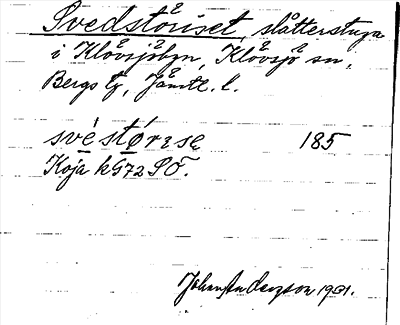 Svedstöriset, slåtterstuga
i Klövsjöbyn, Klövsjö sn,
Bergs tg, Jämtl. l.
své stø̀rɪse 185
Koja kG72 SO.
Johan Anderzson 1931.